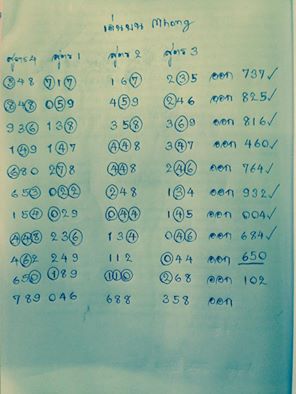 เด่นบน Mhong
สูตร 4 สูตร 1 สูตร 2 สูตร 3
848 717 167 235 ออก 737 ✓
848 059 459 246 ออก 825 ✓
936 138 358 369 ออก 816 ✓
149 147 448 347 ออก 460 ✓
680 278 448 246 ออก 764 ✓
653 022 248 134 ออก 932 ✓
154 029 044 145 ออก 004 ✓
448 236 134 046 ออก 684 ✓
462 249 112 044 ออก 650
650 189 110 268 ออก 102
789 046 688 358 ออก